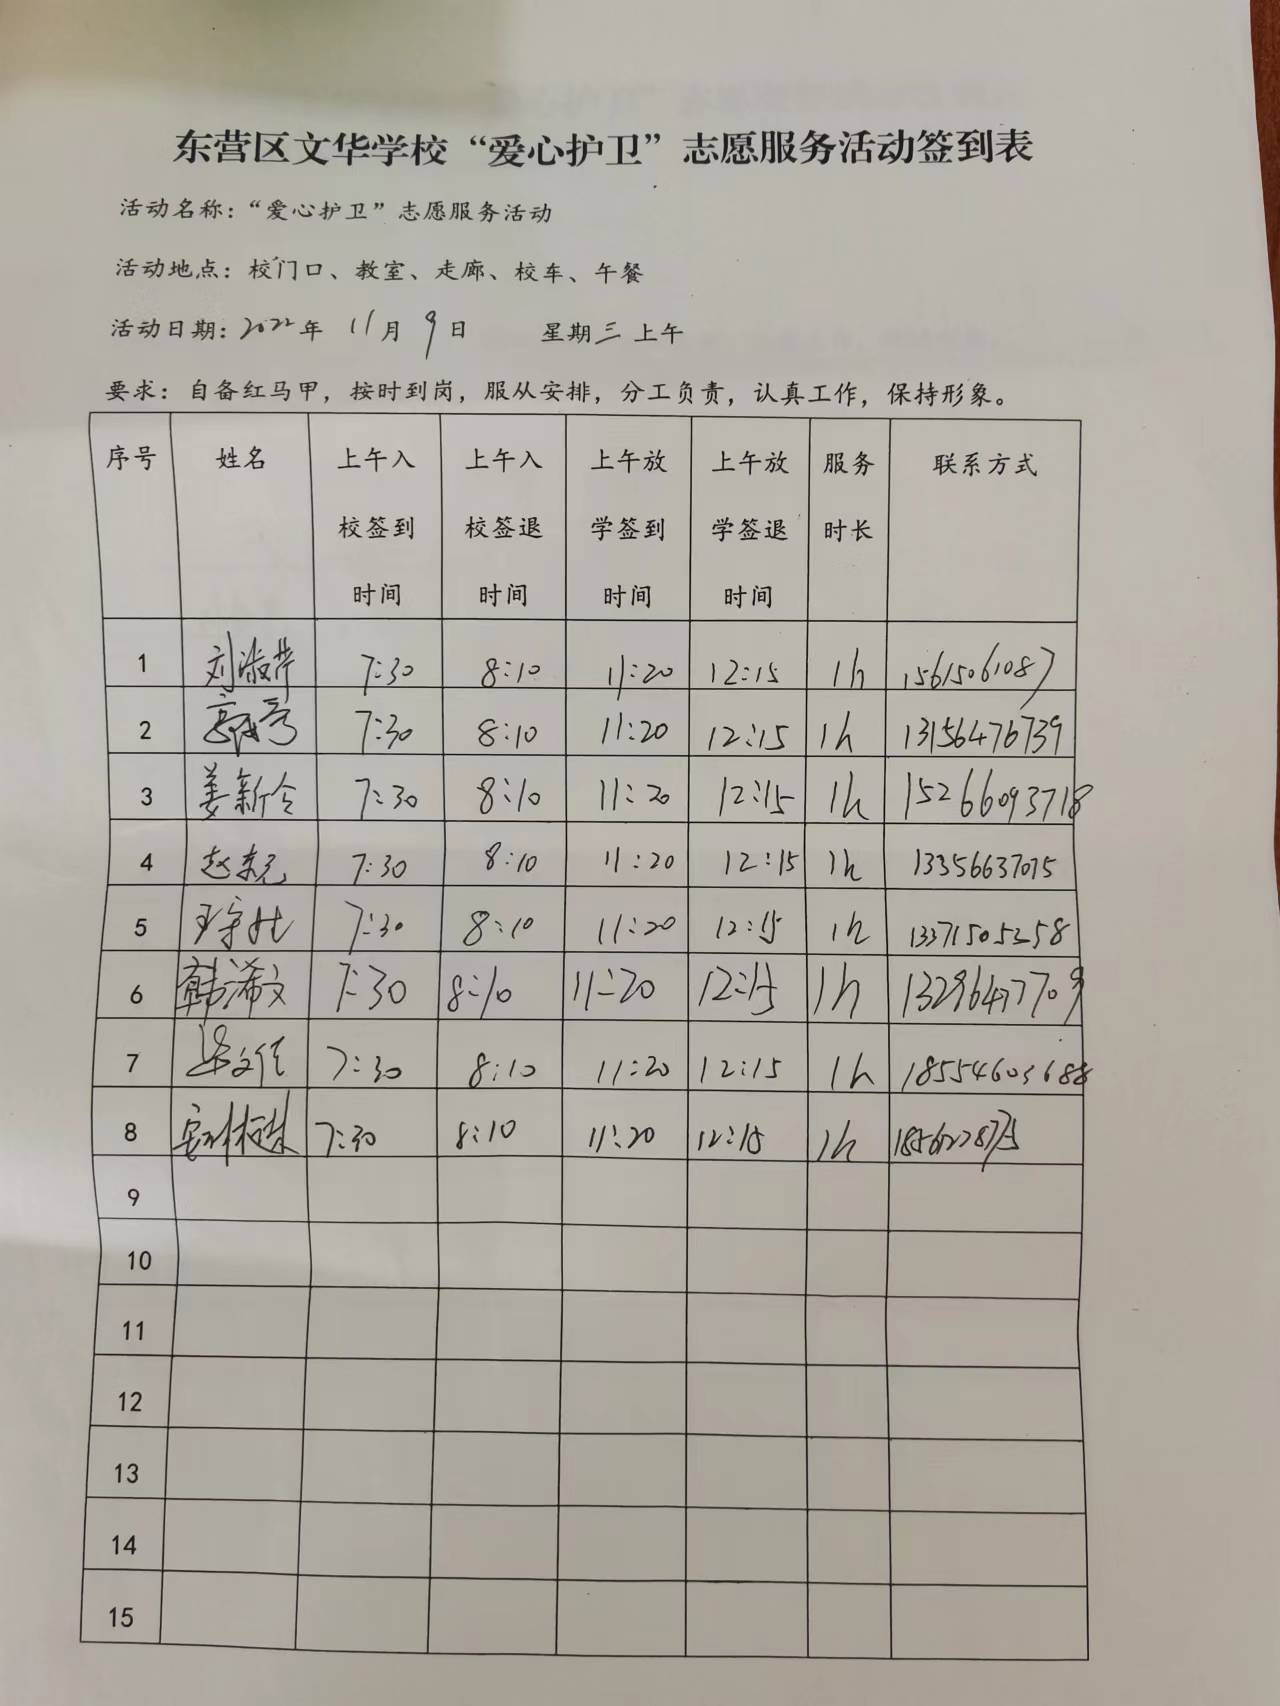 东营区文华学校“爱心护卫”志愿服务活动签到表
活动名称：“爱心护卫”志愿服务活动
活动地点：校门口、教室、走廊、校车、午餐
活动日期：2022年 11月 9日 星期三 上午
要求：自备红马甲，按时到岗，服从安排，分工负责，认真工作，保持形象。
序号 姓名 上午入校签到时间 上午入校签退时间 上午放学签到时间 上午放学签退时间 服务时长 联系方式
1 刘淑芹 7:30 8:10 11:20 12:15 1h 15615061087
2 7:30 8:10 11:20 12:15 1h 13156476739
3 姜新令 7:30 8:10 11:20 12:15 1h 15266093718
4 赵 7:30 8:10 11:20 12:15 1h 13356637015
5 王 7:30 8:10 11:20 12:15 1h 13371505258
6 韩浠文 7:30 8:10 11:20 12:15 1h 13296477709
7 梁文佳 7:30 8:10 11:20 12:15 1h 18554603688
8 7:30 8:10 11:20 12:15 1h
9
10
11
12
13
14
15